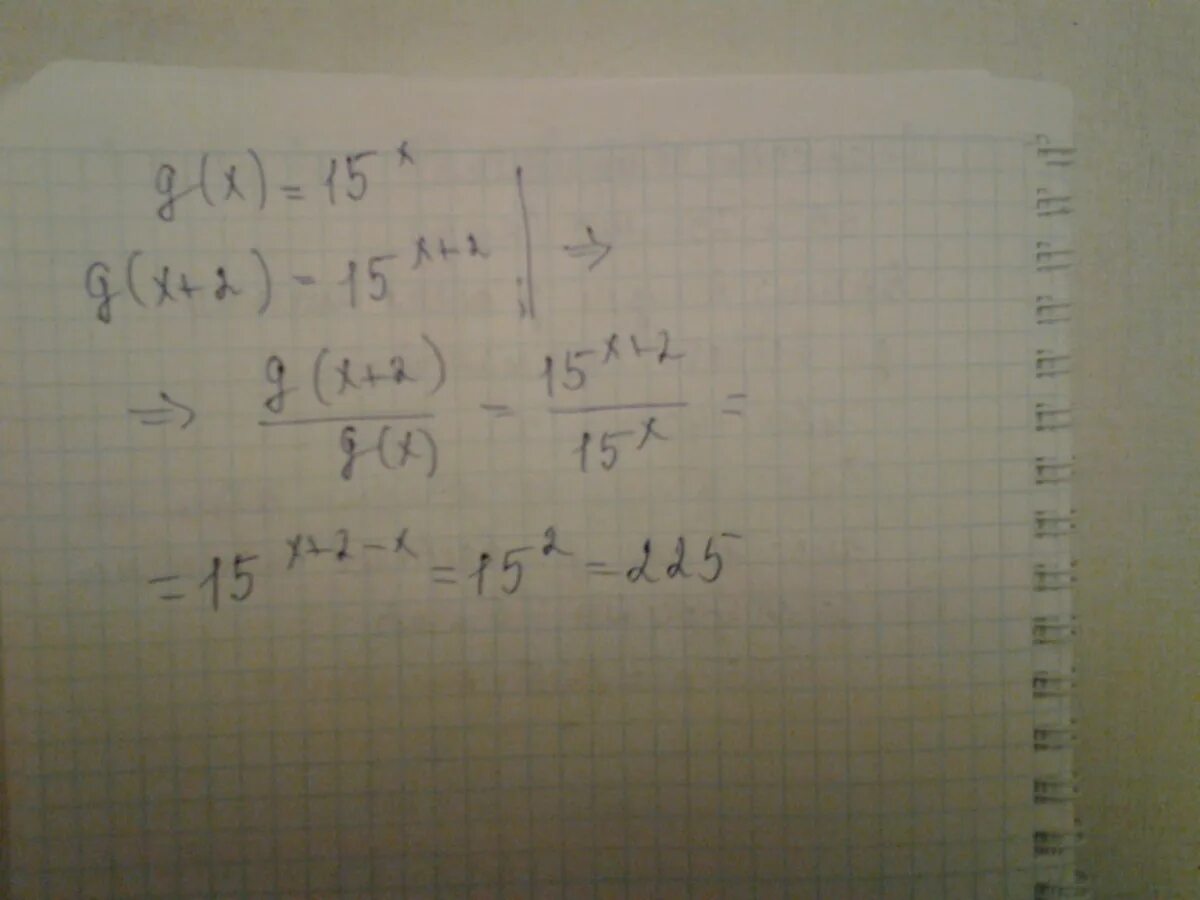 g(x) = 15^x
g(x+2) = 15^(x+2) | ⇒
⇒ g(x+2)/g(x) = 15^(x+2)/15^x =
= 15^(x+2-x) = 15^2 = 225